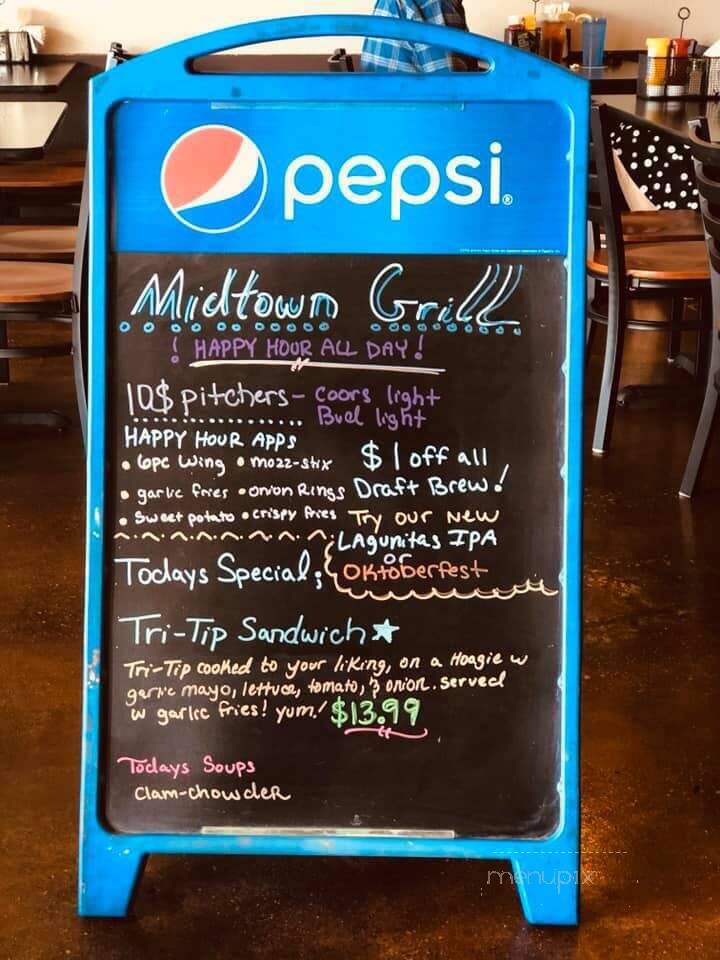 pepsi®
Midtown Grill
! HAPPY HOUR ALL DAY!
10$ pitchers - Coors light
Bud light
HAPPY HOUR APPS
• 6pc Wing • mozz-stix
• garlic fries • onion Rings
• Sweet potato • crispy fries
$1 off all
Draft Brew!
Try our New
LAgunitas IPA
or
OKtoberfest
Todays Special;
Tri-Tip Sandwich ★
Tri-Tip cooked to your liking, on a Hoagie w
garlic mayo, lettuce, tomato, & onion. served
w garlic fries! yum! $13.99
Todays Soups
Clam-chowdeR
menupix